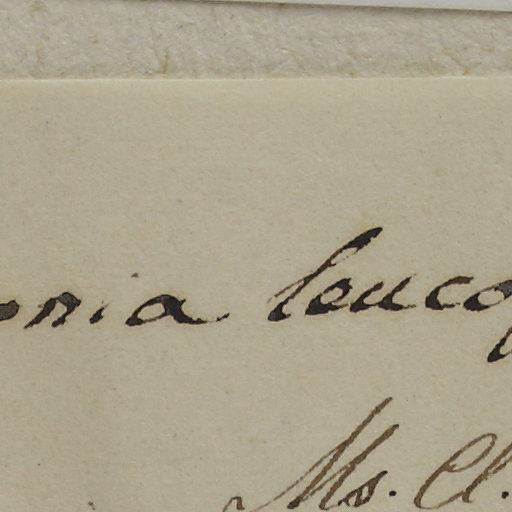 onia leuco
Ms. Cl.